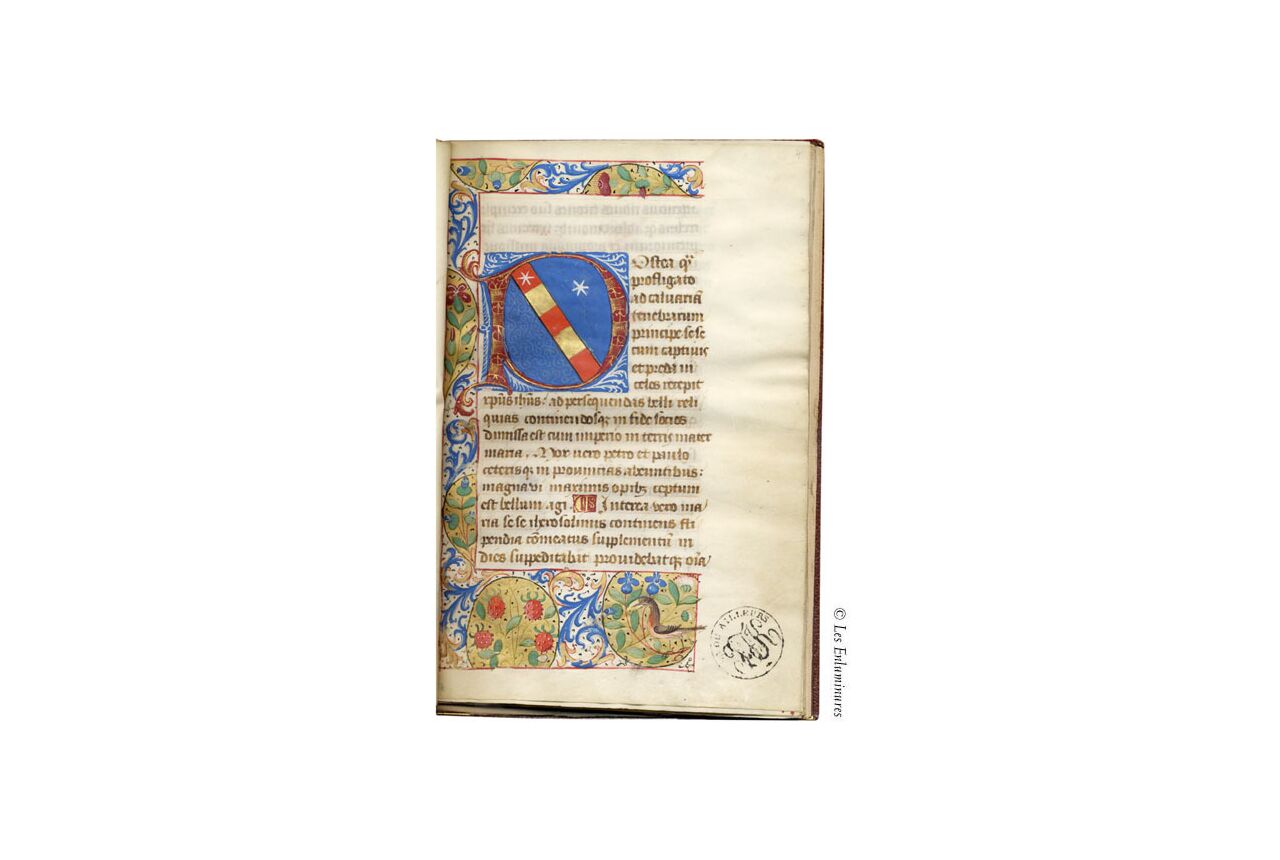 Ostea qᷓ
profligato
ad calvariā
tenebrarum
principe se se
cum captivis
et preda in
celos recepit
xp̄us ih̄us: ad persequendas belli reli
quias continendosqꝫ in fide socios
dimissa est cum imperio in terris mater
maria. Nox uero petro et paulo
ceterisqꝫ in provincias abeuntibus:
magna vi maximis opibꝫ ceptum
est bellum agi. Interea vero ma
ria se se iherosolimis continens sti
pendia cōmeatus supplementū in
dies suppeditabat providebatqꝫ oīa
OU AILLEURS
© Les Enluminures